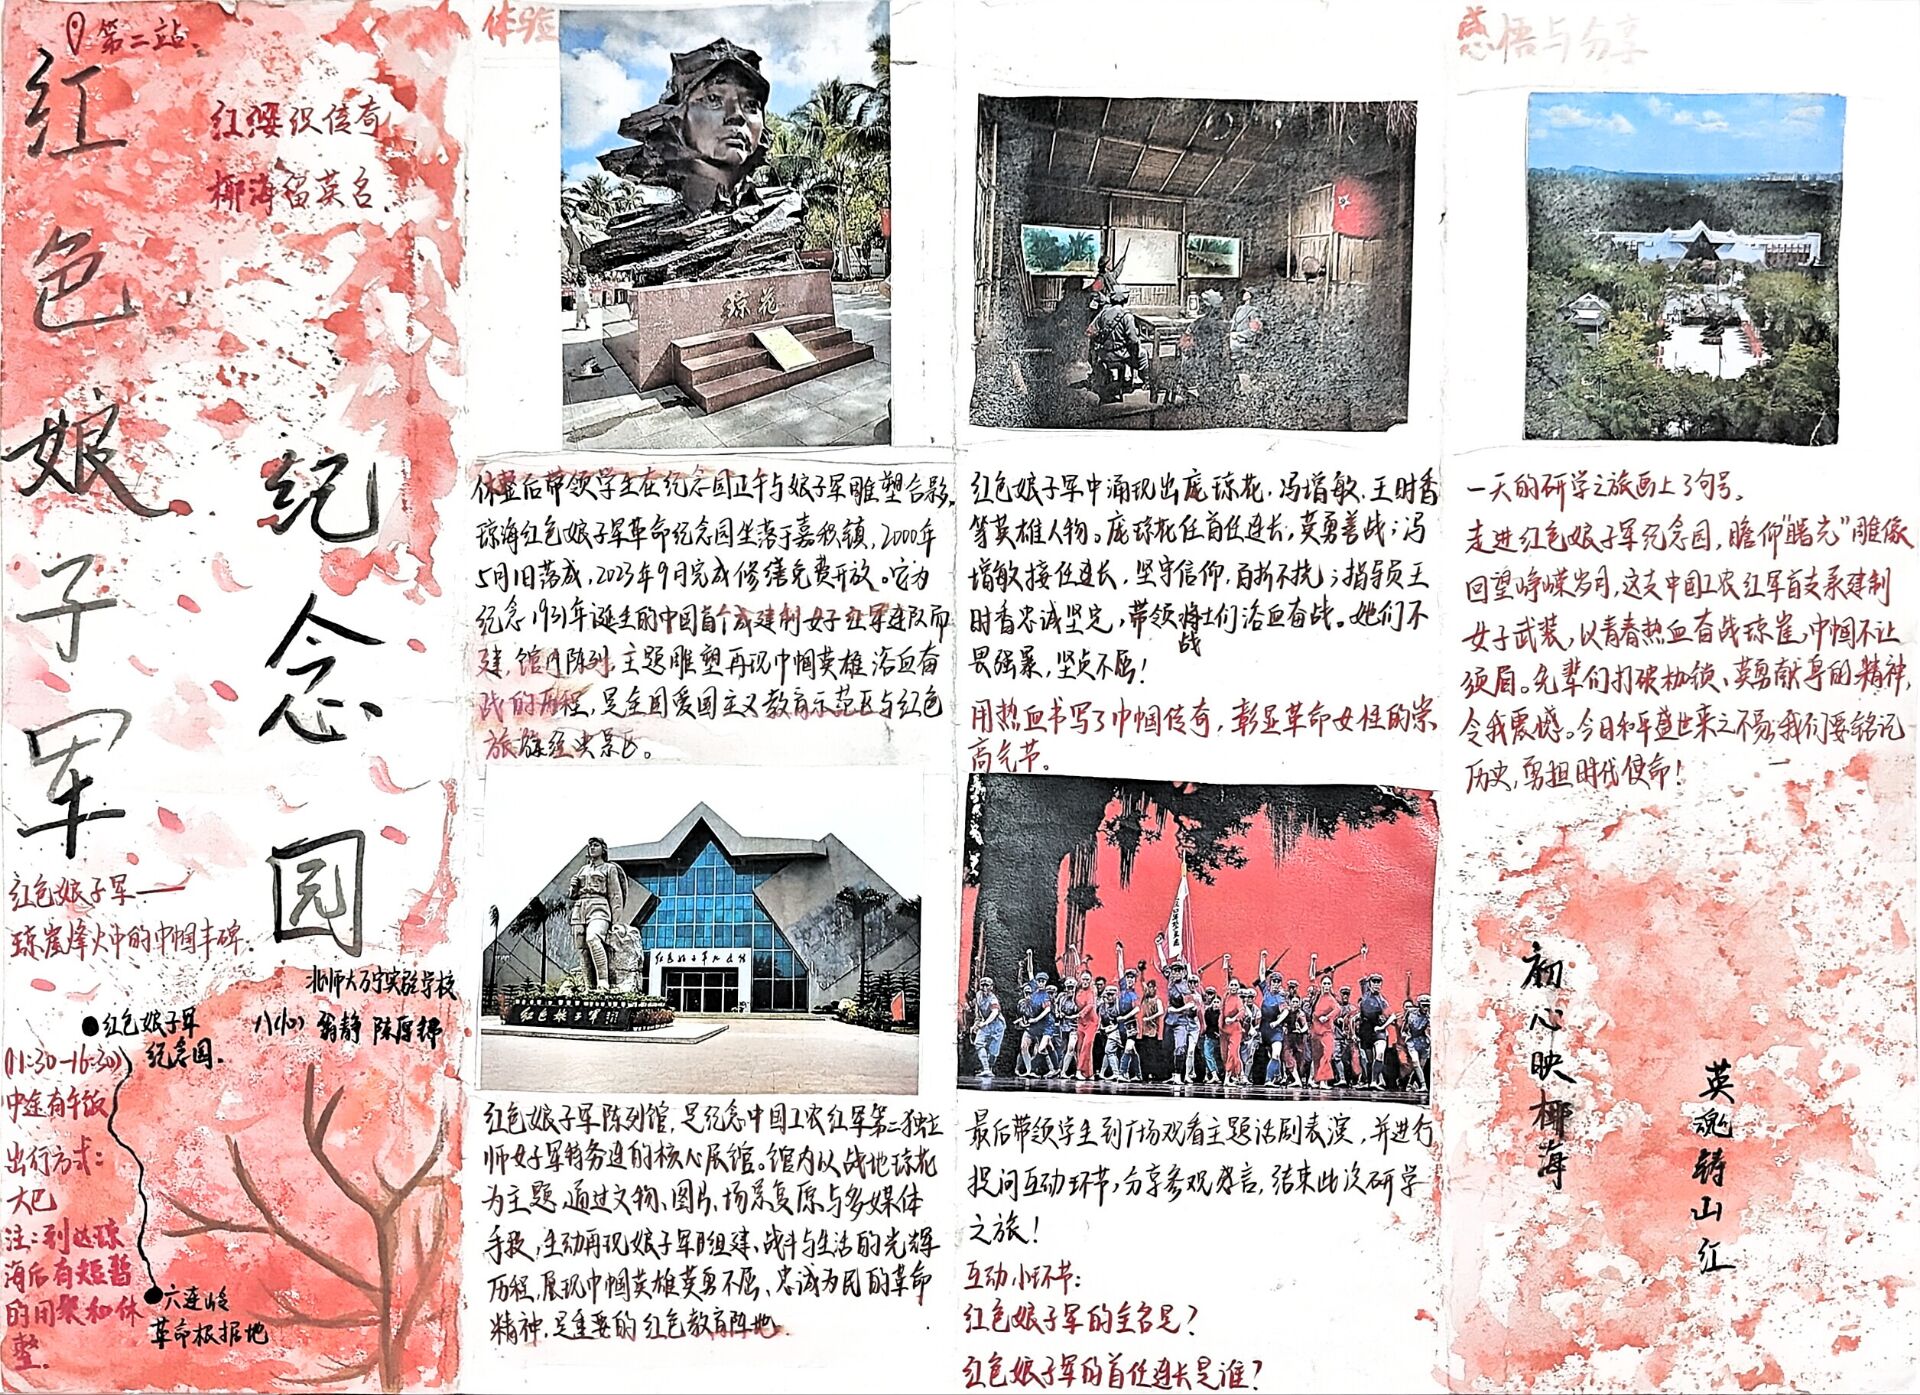 第二站
红色娘子军
纪念园
红缨织传奇
椰海留英名.
红色娘子军——
琼崖烽火中的巾帼丰碑.
北师大万宁实验学校
八(10) 翁静
红色娘子军
纪念园.
(11:30-16:30)
中途有午饭
出行方式:
大巴
注:到达琼
海后有短暂
的用餐和休
整.
六连岭
革命根据地
体验
琼花
休整后带领学生在纪念园正午与娘子军雕塑合影。
琼海红色娘子军革命纪念园坐落于嘉积镇,2000年
5月1日落成,2023年9月完成修缮免费开放。它为
纪念1931年诞生的中国首个成建制女子红军连队而
建,馆内陈列、主题雕塑再现巾帼英雄浴血奋
战的历程,是全国爱国主义教育示范区与红色
旅游经典景区。
红色娘子军
红色娘子军陈列馆,是纪念中国工农红军第二独立
师女子军特务连的核心展馆。馆内以战地琼花
为主题,通过文物、图片、场景复原与多媒体
手段,生动再现娘子军组建、战斗与生活的光辉
历程,展现巾帼英雄英勇不屈、忠诚为民的革命
精神,是重要的红色教育阵地.
红色娘子军中涌现出庞琼花、冯增敏、王时香
等英雄人物。庞琼花任首任连长,英勇善战;冯
增敏接任连长,坚守信仰,百折不挠;指导员王
时香忠诚坚定,带领战士们浴血奋战。她们不
畏强暴,坚贞不屈!
用热血书写了巾帼传奇,彰显革命女性的崇
高气节。
最后带领学生到广场观看主题话剧表演,并进行
提问互动环节,分享参观感言,结束此次研学
之旅!
互动小环节:
红色娘子军的全名是?
红色娘子军的首任连长是谁?
感悟与分享
一天的研学之旅画上了句号。
走进红色娘子军纪念园,瞻仰“曙光”雕像
回望峥嵘岁月,这支中国工农红军首支成建制
女子武装,以青春热血奋战琼崖,巾帼不让
须眉。先辈们打破枷锁、英勇献身的精神,
令我震撼。今日和平盛世来之不易,我们要铭记
历史,勇担时代使命!
初心映椰海
英魂铸山红